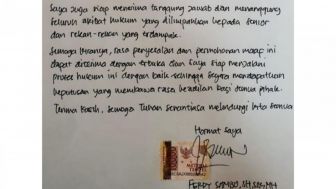 Saya juga siap menerima tanggung jawab dan menanggung
seluruh akibat hukum yang dilimpahkan kepada senior
dan rekan-rekan yang terdampak.
Semoga kiranya, rasa penyesalan dan permohonan maaf ini
dapat diterima dengan terbuka dan saya siap menjalani
proses hukum ini dengan baik sehingga segera mendapatkan
keputusan yang membawa rasa keadilan bagi semua pihak.
Terima kasih, semoga Tuhan senantiasa melindungi kita semua
Hormat Saya
METERAI
TEMPEL
FERDY SAMBO, SH, SIK, MH